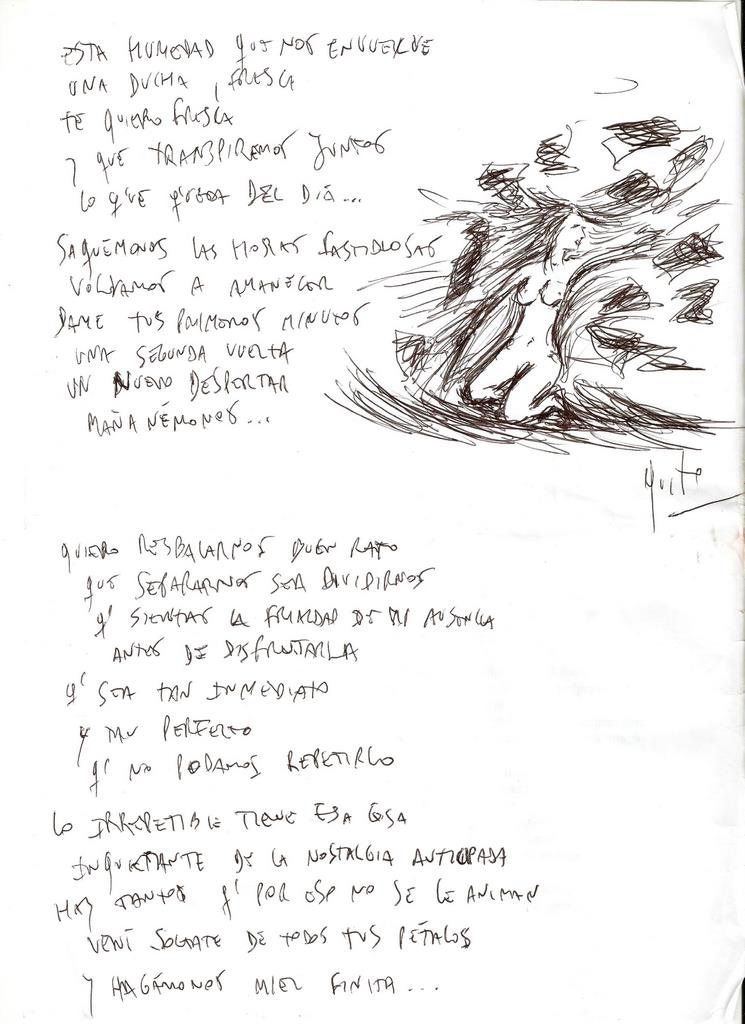 ESTA HUMEDAD QUE NOS ENVUELVE
UNA DUCHA, FRESCA
TE QUIERO FRESCA
Y QUE TRANSPIREMOS JUNTOS
LO Q'UE QUEDA DEL DÍA...
SAQUÉMONOS LAS HORAS FASTIDIOSAS
VOLVAMOS A AMANECER
DAME TUS PRIMEROS MINUTOS
UNA SEGUNDA VUELTA
UN NUEVO DESPERTAR
MAÑANÉMONOS...
QUIERO RESBALARNOS BUEN RATO
QUE SEPARARNOS SEA DIVIDIRNOS
Q' SIENTAS LA FRIALDAD DE MI AUSENCIA
ANTES DE DISFRUTARLA
Q' SEA TAN INMEDIATO
Y TAN PERFECTO
Q' NO PODAMOS REPETIRLO
LO IRREPETIBLE TIENE ESA COSA
INQUIETANTE DE LA NOSTALGIA ANTICIPADA
HAY TANTOS Q' POR ESO NO SE LE ANIMAN
VENÍ SOLTATE DE TODOS TUS PÉTALOS
Y HAGÁMONOS MIEL FINITA...